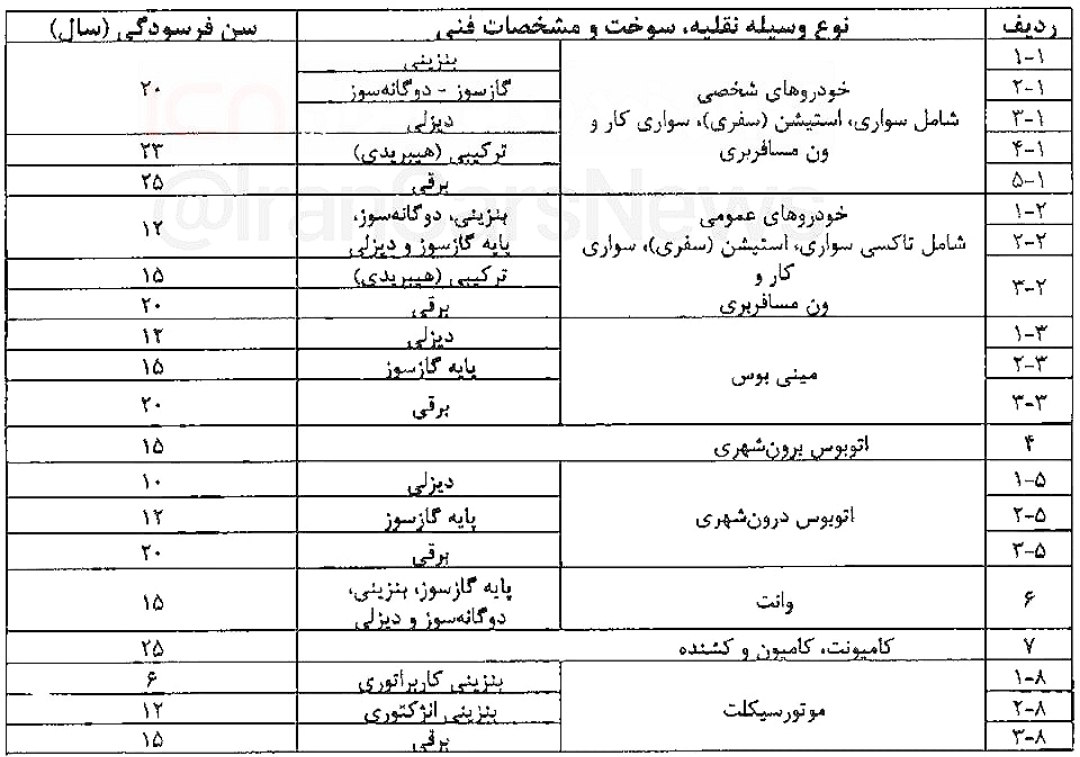 ردیف نوع وسیله نقلیه، سوخت و مشخصات فنی سن فرسودگی (سال)
۱-۱ خودروهای شخصی شامل سواری، استیشن (سفری)، سواری کار و ون مسافربری بنزینی ۲۰
۲-۱ گازسوز - دوگانه‌سوز
۳-۱ دیزلی
۴-۱ ترکیبی (هیبریدی) ۲۳
۵-۱ برقی ۲۵
۱-۲ خودروهای عمومی شامل تاکسی سواری، استیشن (سفری)، سواری کار و ون مسافربری بنزینی، دوگانه‌سوز، پایه گازسوز و دیزلی ۱۲
۲-۲ ترکیبی (هیبریدی) ۱۵
۳-۲ برقی ۲۰
۱-۳ مینی بوس دیزلی ۱۲
۲-۳ پایه گازسوز ۱۵
۳-۳ برقی ۲۰
۴ اتوبوس برون‌شهری ۱۵
۱-۵ اتوبوس درون‌شهری دیزلی ۱۰
۲-۵ پایه گازسوز ۱۲
۳-۵ برقی ۲۰
۶ وانت پایه گازسوز، بنزینی، دوگانه‌سوز و دیزلی ۱۵
۷ کامیونت، کامیون و کشنده ۲۵
۱-۸ موتورسیکلت بنزینی کاربراتوری ۶
۲-۸ بنزینی انژکتوری ۱۲
۳-۸ برقی ۱۵
@IranCarsNews